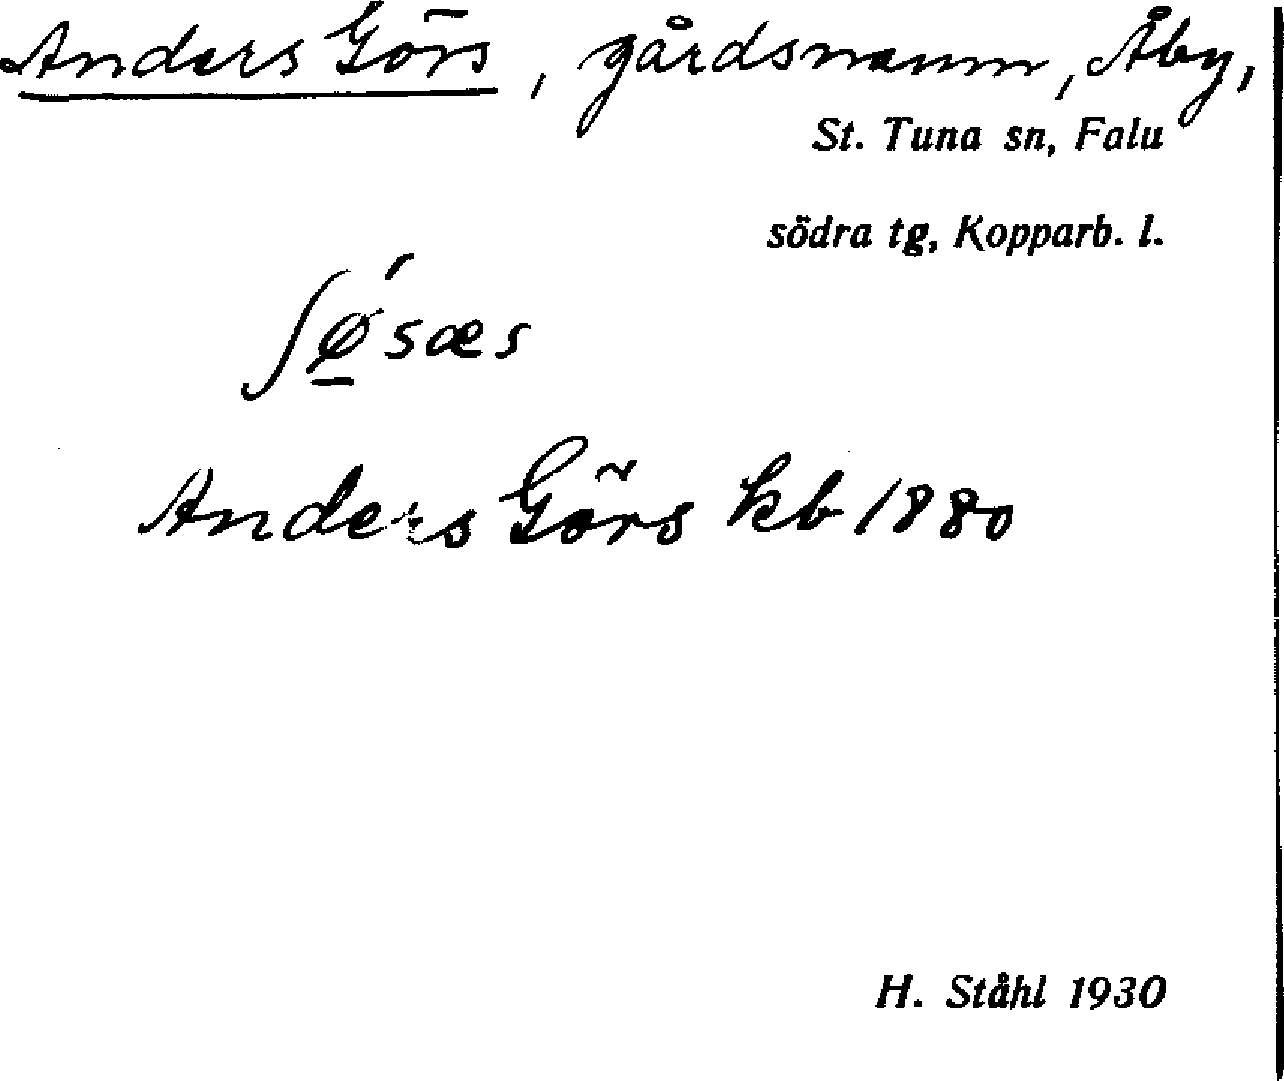 Anders Görs, gårdsnamn, Åby,
St. Tuna sn, Falu
södra tg, Kopparb. l.
ʃǿ̱sæs
Anders Görs kb 1880
H. Ståhl 1930